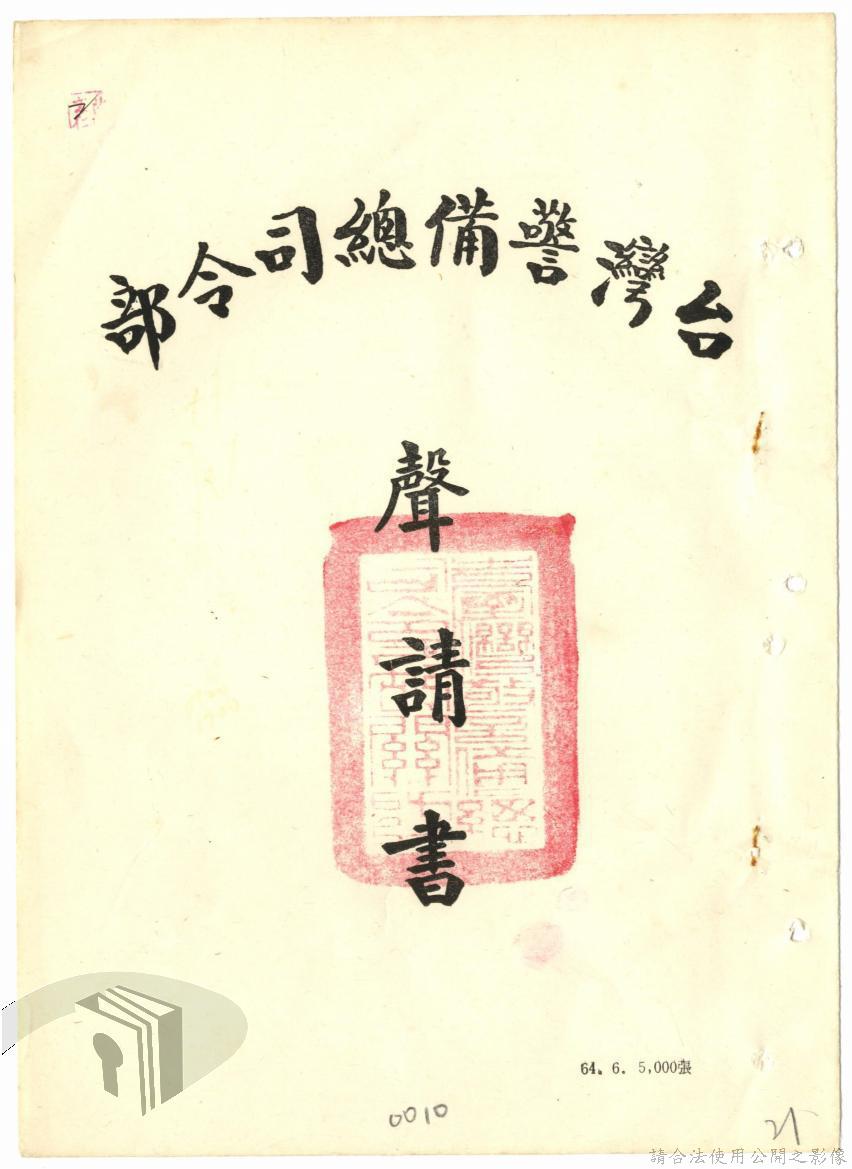 台灣警備總司令部
聲請書
64. 6. 5,000張
0010
請合法使用公開之影像